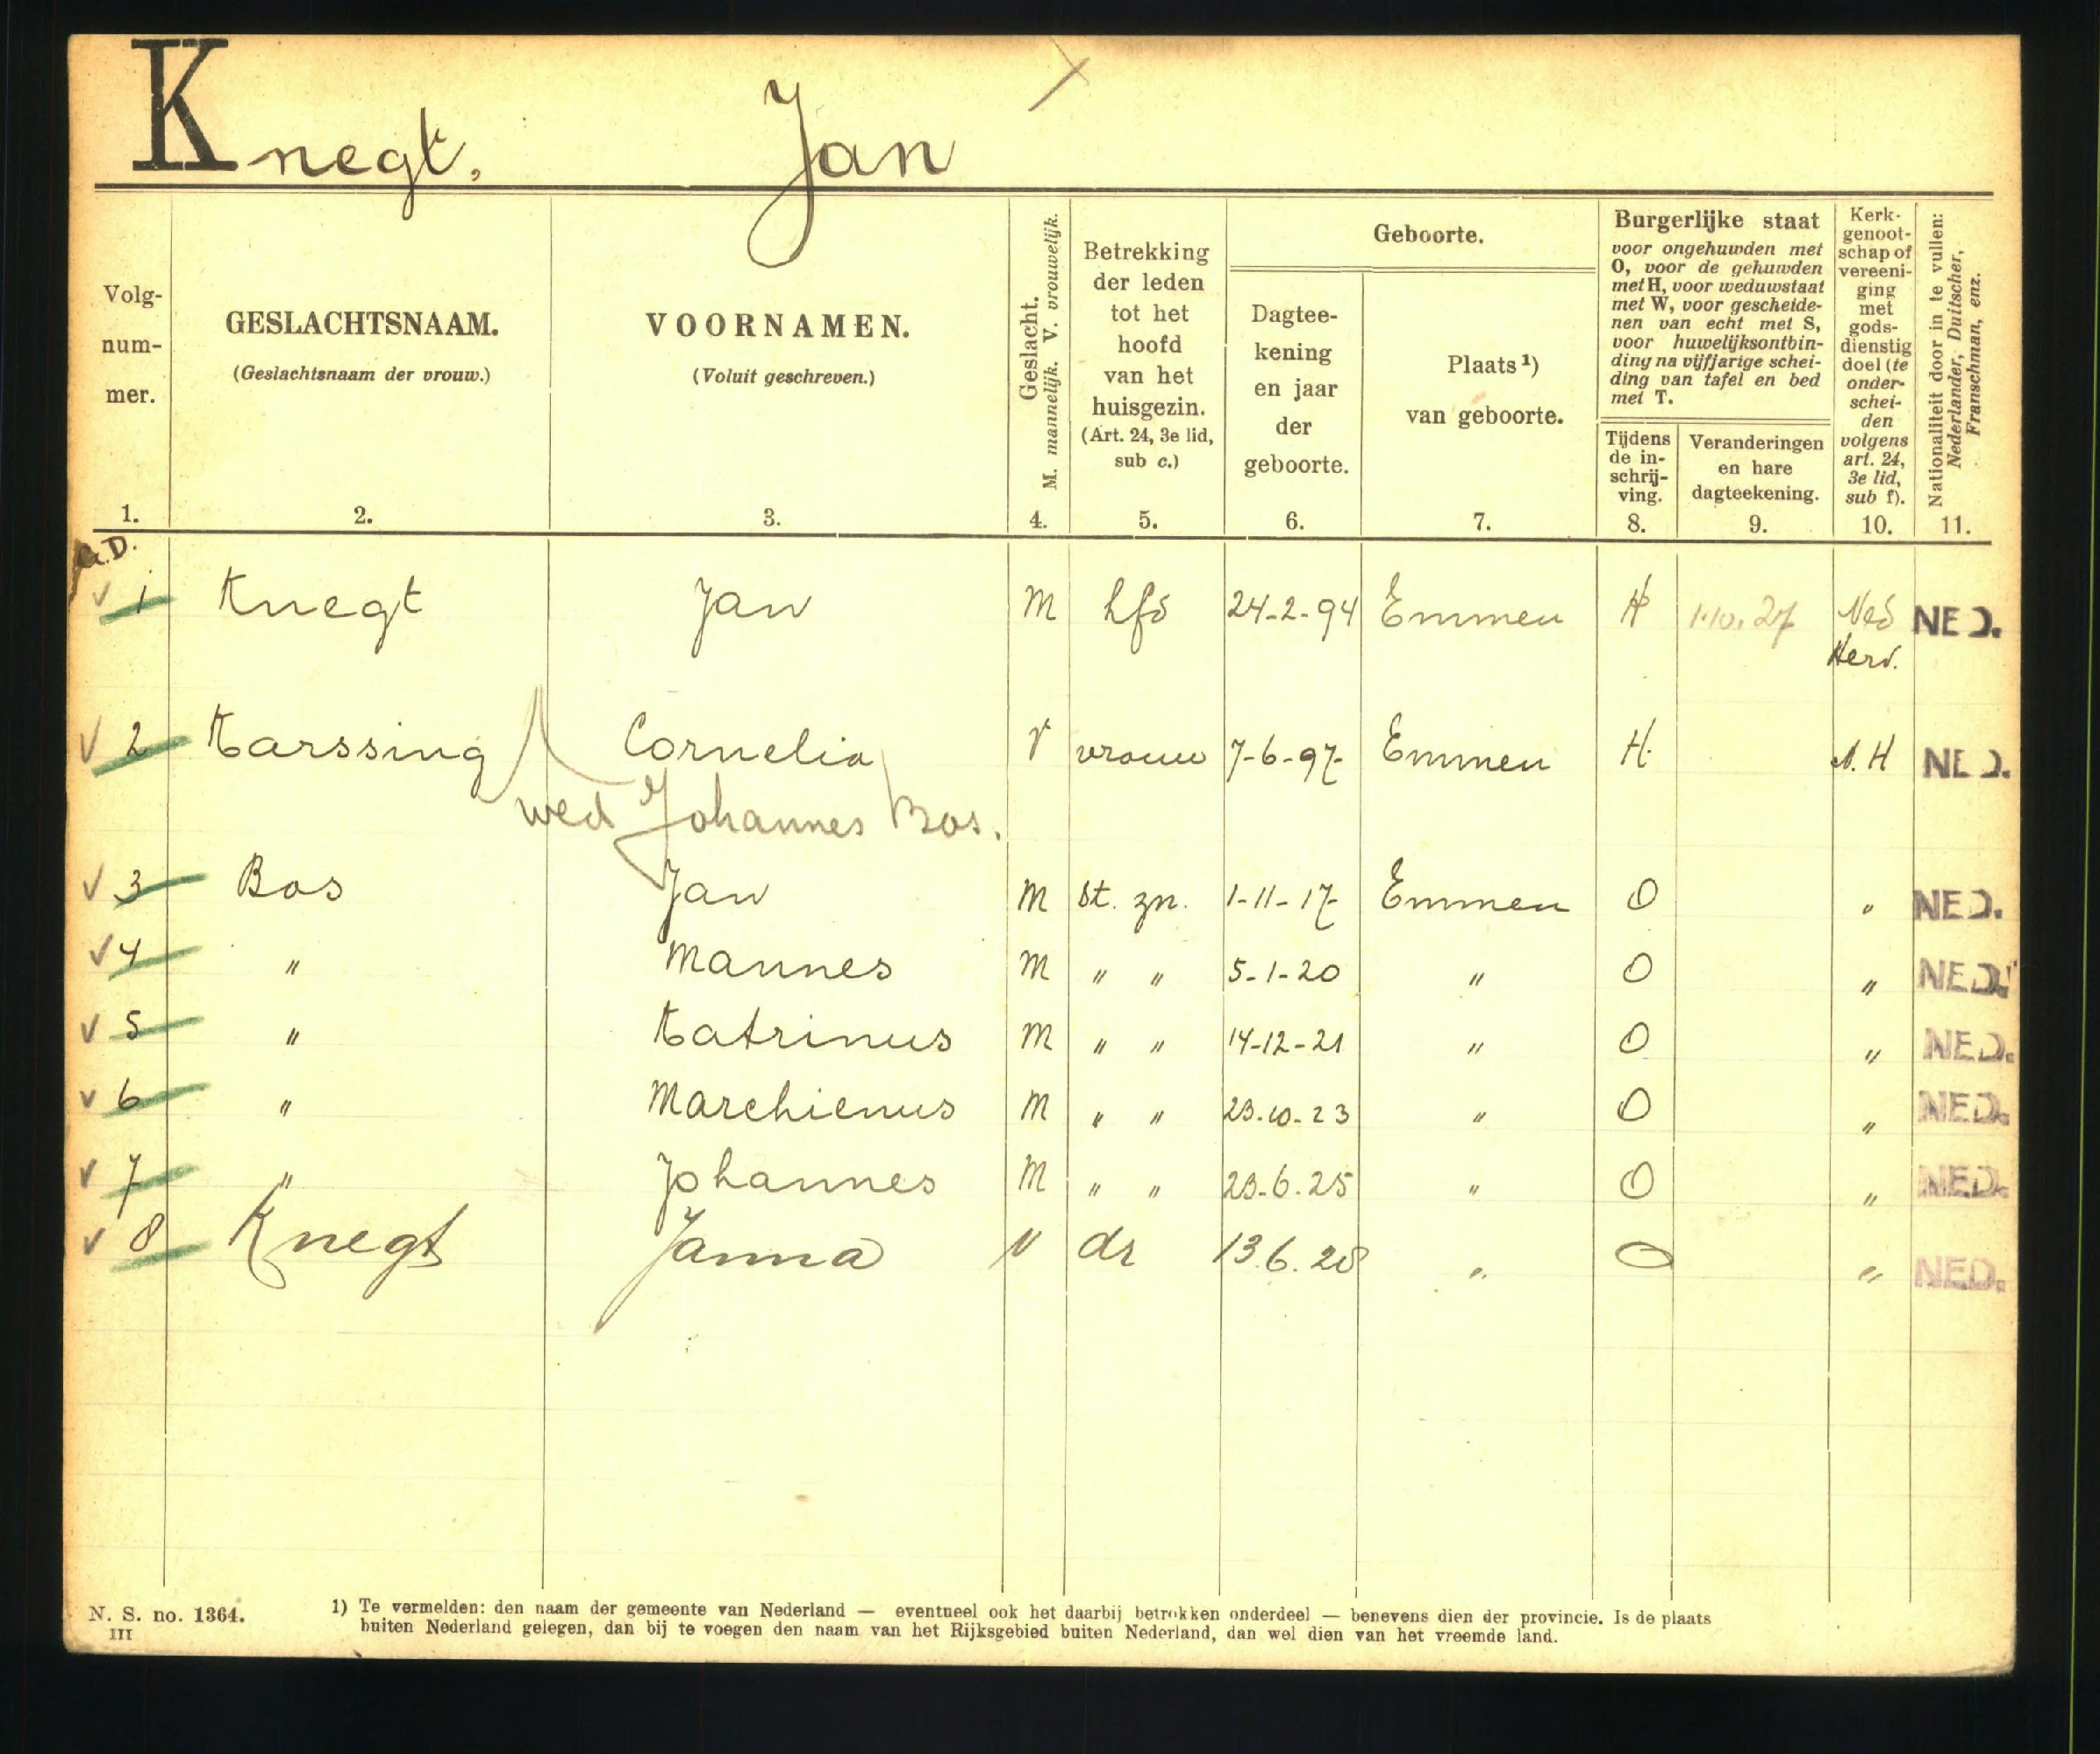 Knegt, Jan
Volg-
num-
mer.
1.
GESLACHTSNAAM.
(Geslachtsnaam der vrouw.)
2.
VOORNAMEN.
(Voluit geschreven.)
3.
Geslacht.
M. mannelijk. V. vrouwelijk.
4.
Betrekking
der leden
tot het
hoofd
van het
huisgezin.
(Art. 24, 3e lid,
sub c.)
5.
Geboorte.
Dagtee-
kening
en jaar
der
geboorte.
6.
Plaats ¹)
van geboorte.
7.
Burgerlijke staat
voor ongehuwden met
O, voor de gehuwden
met H, voor weduwstaat
met W, voor gescheide-
nen van echt met S,
voor huwelijksontbin-
ding na vijfjarige schei-
ding van tafel en bed
met T.
Tijdens
de in-
schrij-
ving.
8.
Veranderingen
en hare
dagteekening.
9.
Kerk-
genoot-
schap of
vereeni-
ging
met
gods-
dienstig
doel (te
onder-
schei-
den
volgens
art. 24,
3e lid,
sub f).
10.
Nationaliteit door in te vullen:
Nederlander, Duitscher,
Franschman, enz.
11.
G.D.
1 Knegt Jan M hfd 24-2-94 Emmen H 1.10.27 Ned NED.
Herv.
2 Karssing Cornelia V vrouw 7-6-97 Emmen H. N.H NED.
wed Johannes Bos.
3 Bos Jan M st. zn. 1-11-17 Emmen O " NED.
4 " Mannes M " " 5-1-20 " O " NED.
5 " Katrinus M " " 14-12-21 " O " NED.
6 " Marchienus M " " 23-10-23 " O " NED.
7 " Johannes M " " 23-6-25 " O " NED.
8 Knegt Janna V dr 13.6.28 " O " NED.
N. S. no. 1364.
III
1) Te vermelden: den naam der gemeente van Nederland — eventueel ook het daarbij betrokken onderdeel — benevens dien der provincie. Is de plaats
buiten Nederland gelegen, dan bij te voegen den naam van het Rijksgebied buiten Nederland, dan wel dien van het vreemde land.